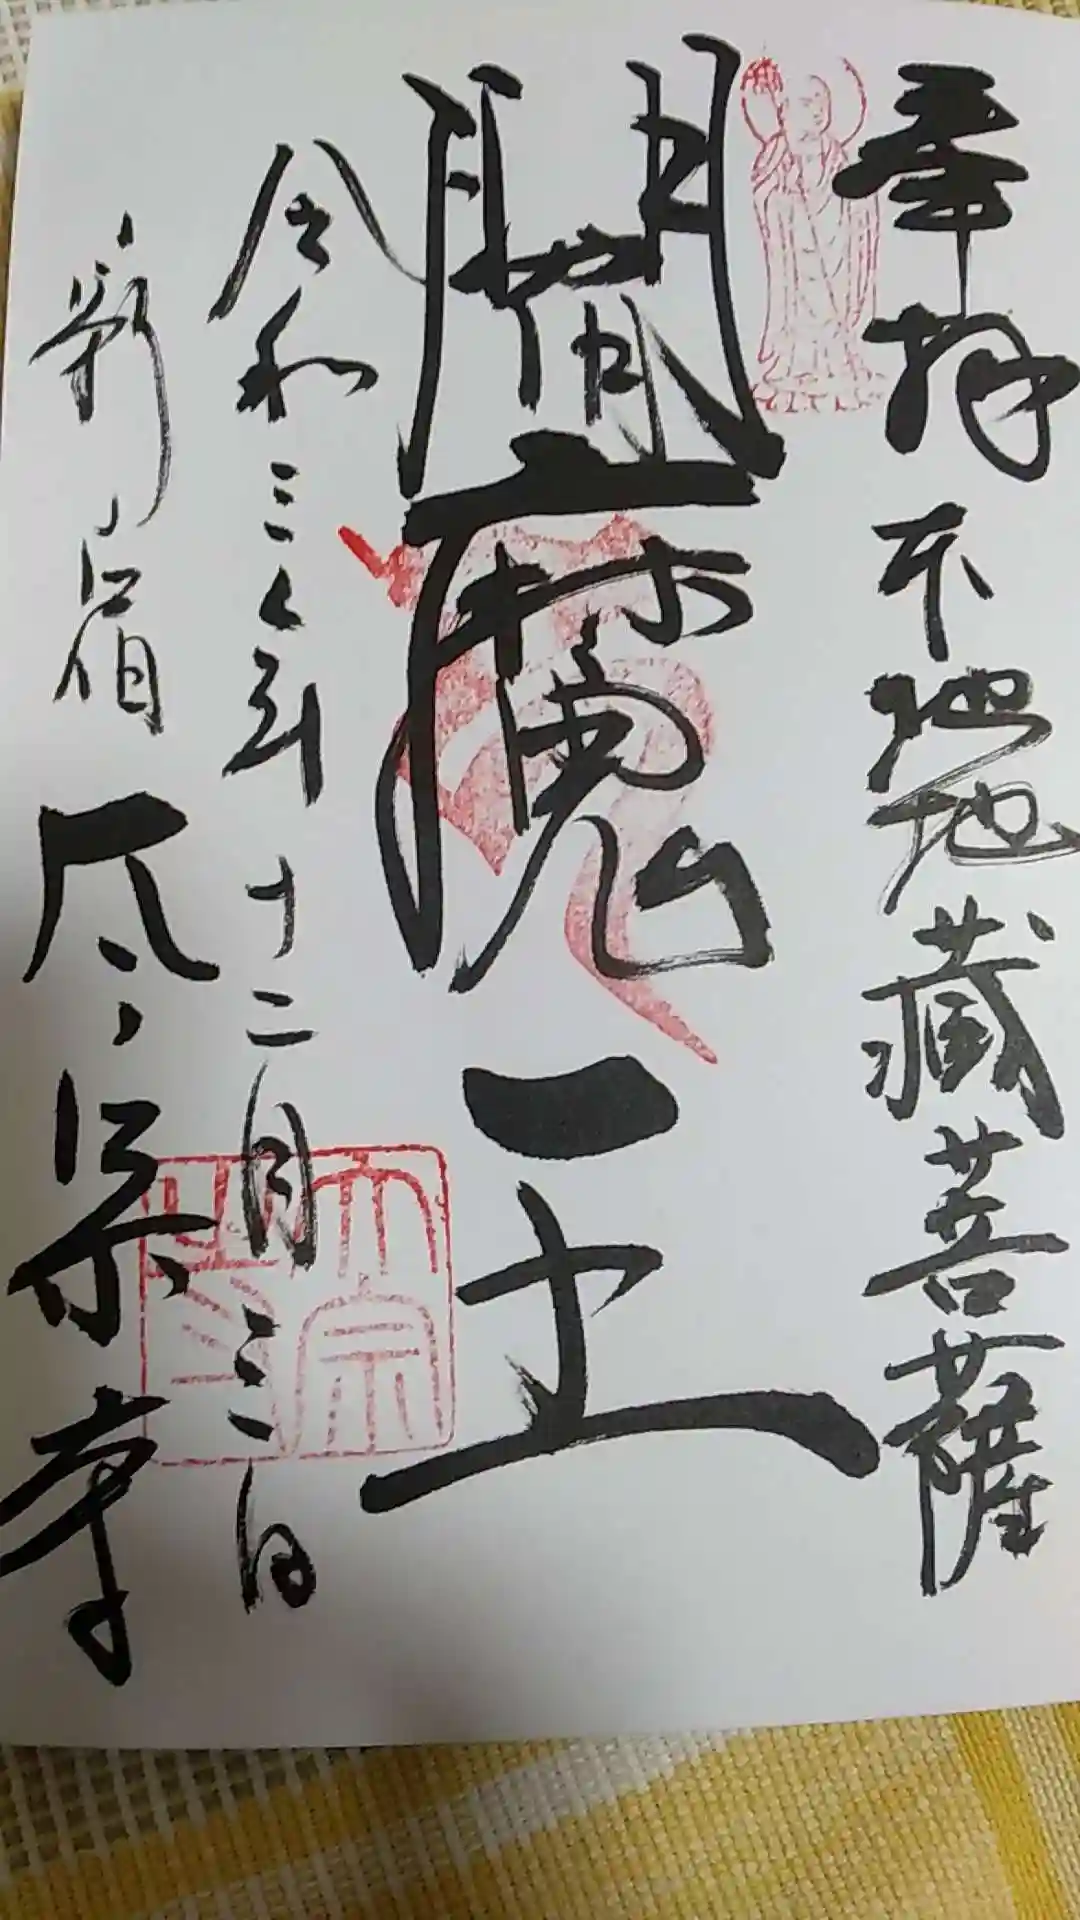 奉拝 不 地藏菩薩
閻魔王
令和三年十二月三日
新宿 太宗寺